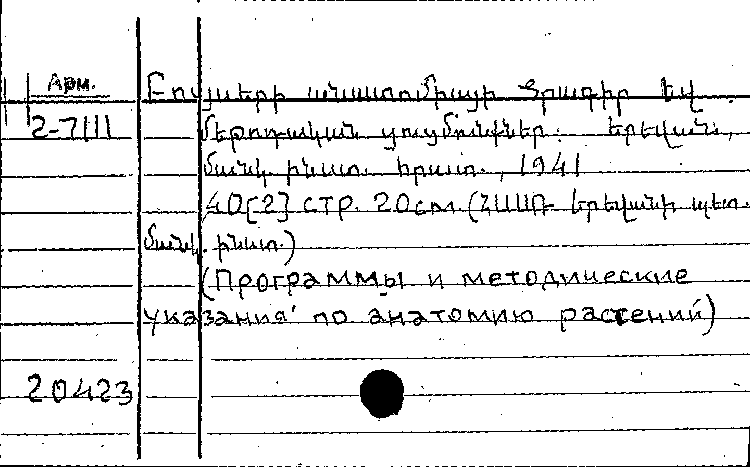 Арм. Բույսերի անատոմիայի ծրագիր եվ
2-7111 մեթոդական ցուցմունքներ. Երեվան,
մանկ. ինստ. հրատ., 1941
40[2] стр. 20см. (ՀՍՍՌ Երեվանի պետ.
մանկ. ինստ.)
(Программы и методические
указания по анатомию растений)
20423